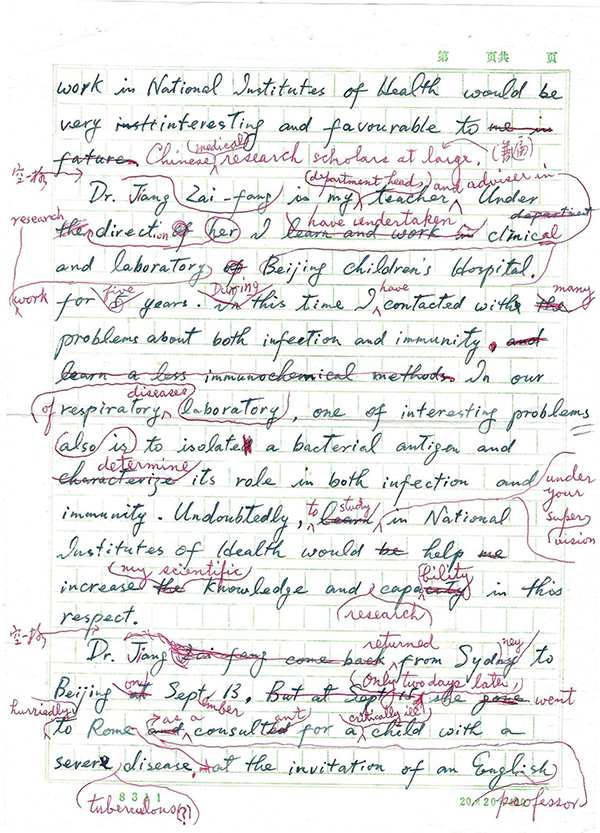 第 页共 页
work in National Institutes of Health would be
very insttinteresting and favourable to me in
future. Chinese medical research scholars at large. (普通)
空一格
(department head, and adviser in
Dr. Jiang Zai-fang is my teacher. Under
research have undertaken department
the direction of her I learn and work in clinical
and laboratory of Beijing Children's Hospital.
work five During have many
for 5 years. In this time I contacted with the
problems about both infection and immunity, and
learn a less immunochemical methods. In our
diseases
of respiratory laboratory, one of interesting problems
also is to isolate a bacterial antigen and
determine
characterize its role in both infection and
under your supervision
to study
immunity. Undoubtedly, learn in National
Institutes of Health would be help me
my scientific bility
increase the knowledge and capacity in this
respect. (research)
空一格 returned ney
Dr. Jiang Zai-fang come back from Sydney to
on ember Only two days later,
Beijing at Sept. 13. But at Sept. she gone went
hurriedly as a ant critically ill
to Rome and consulted for a child with a
severe disease, at the invitation of an English
tuberculous(?) professor
8311 20×20=400